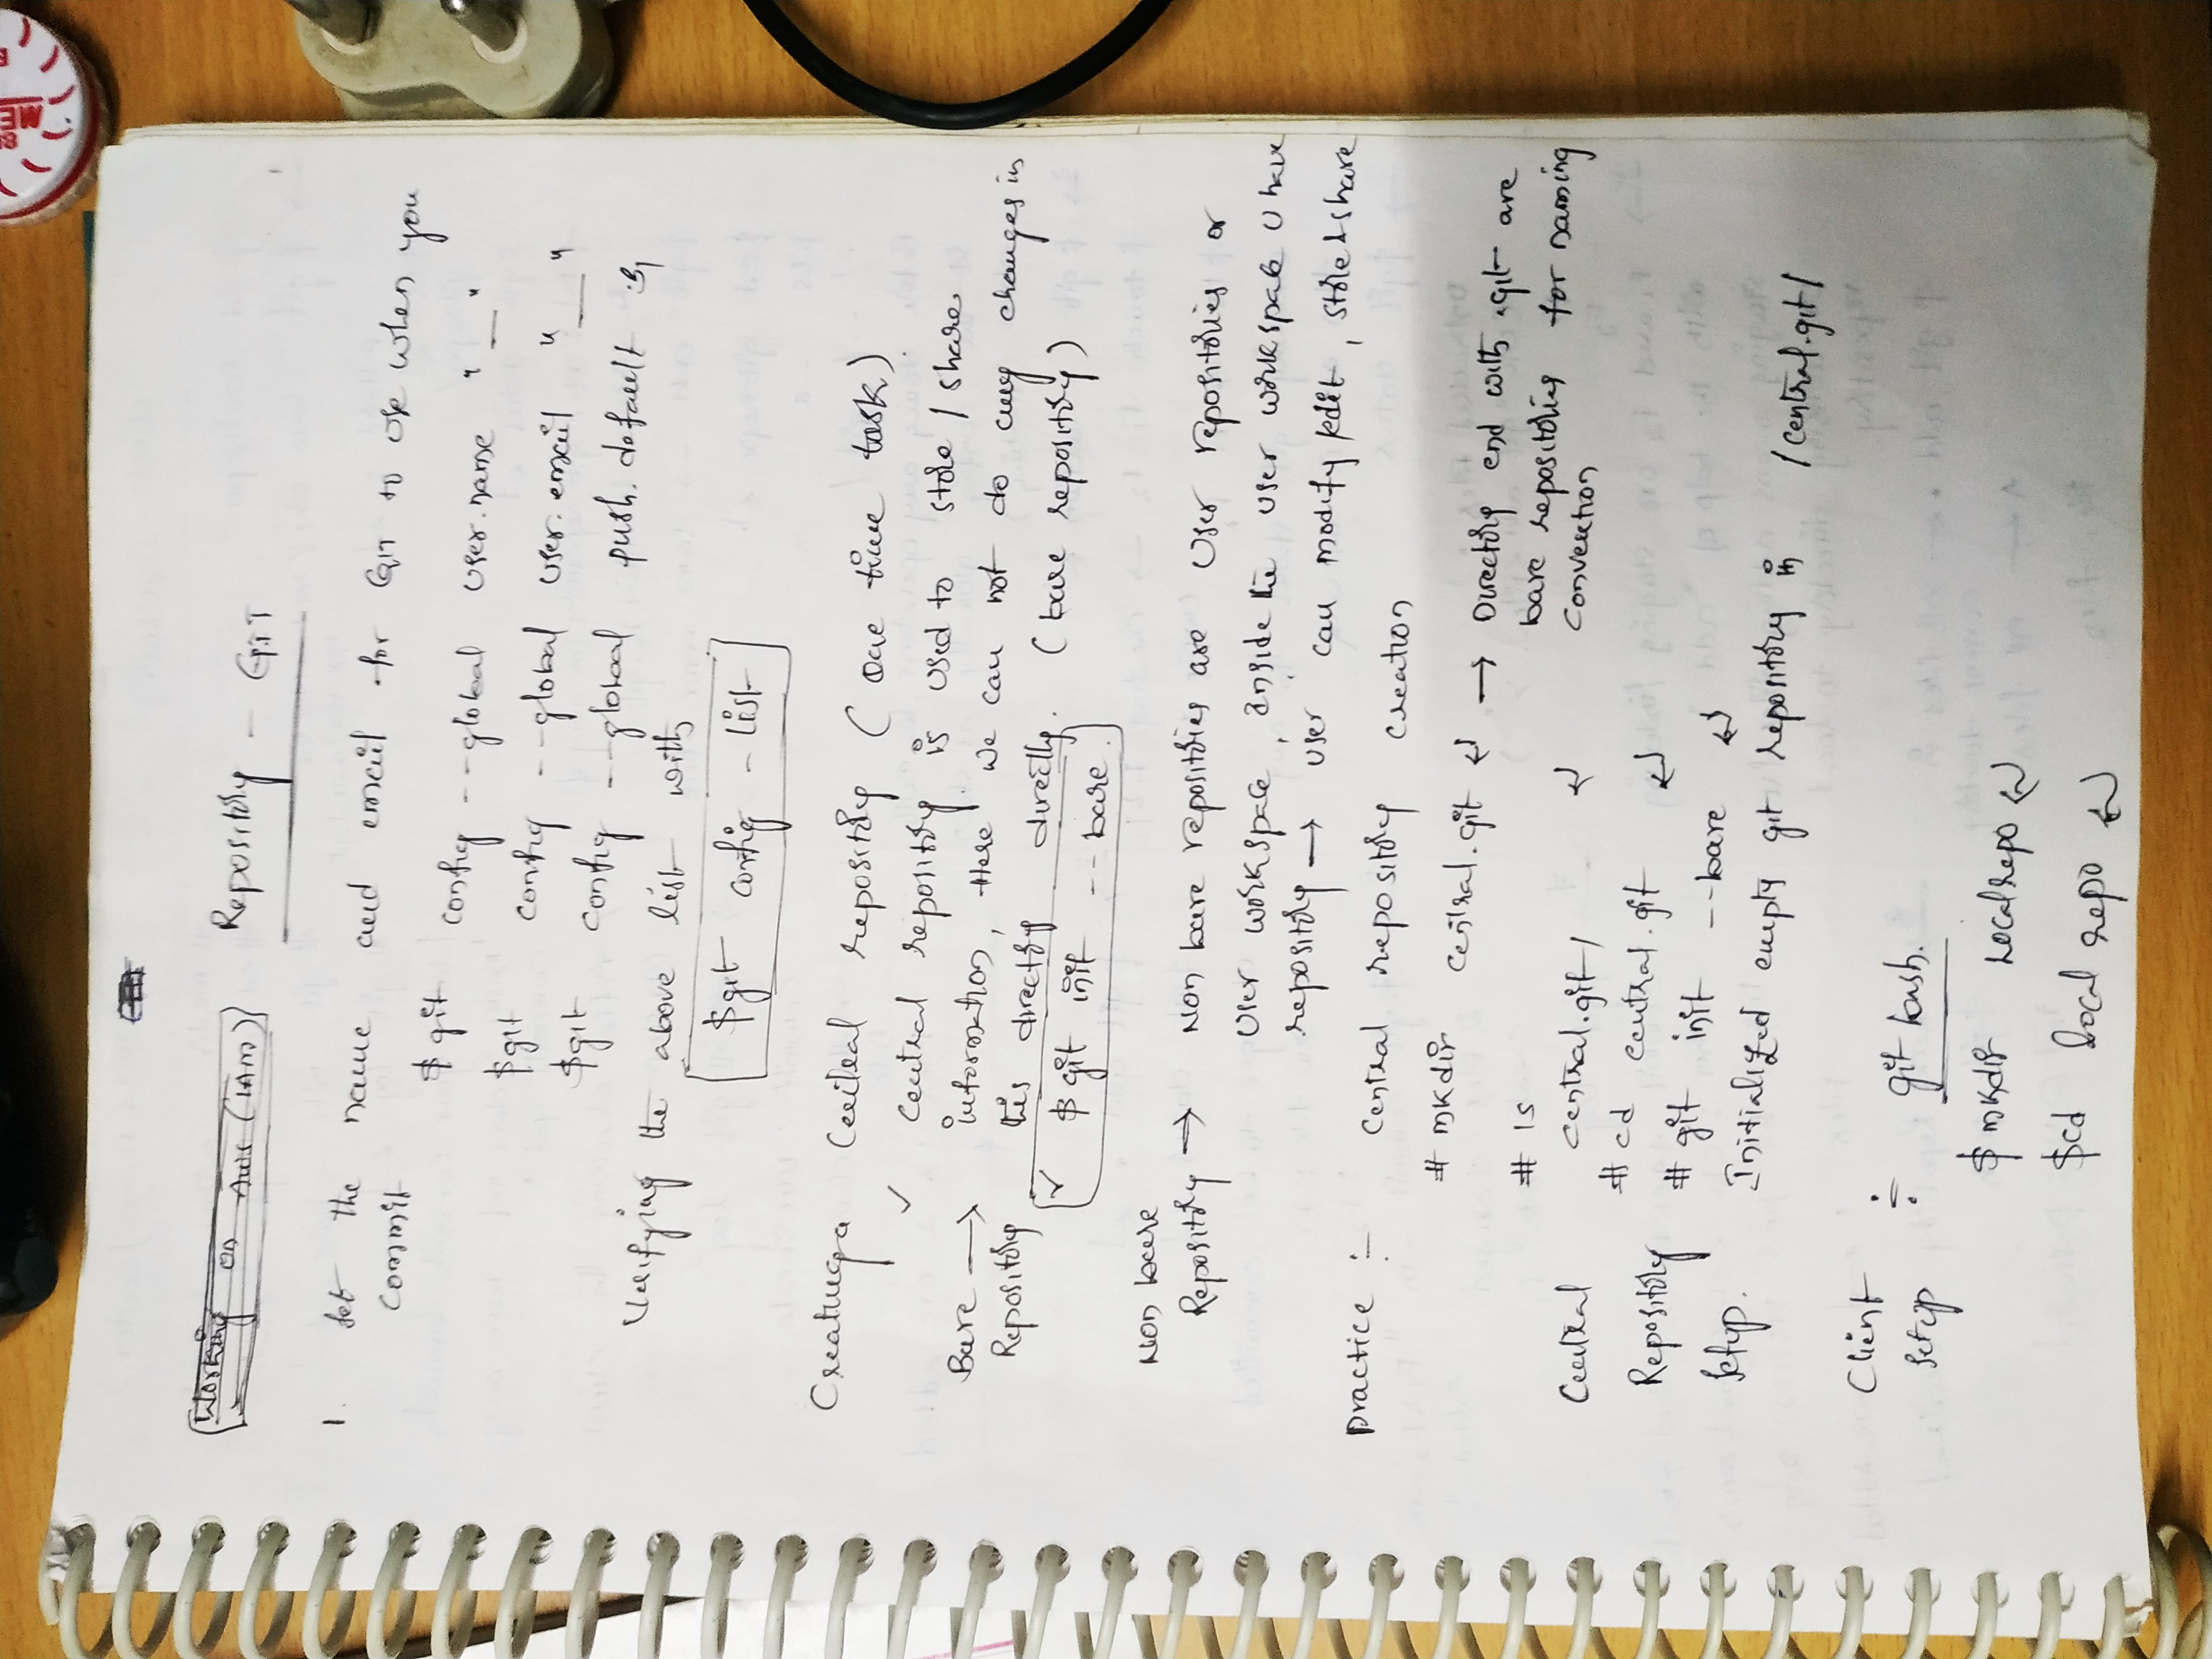 Working on Aws (IAM)
Repository - GIT
1. Set the name and email for GIT to use when you
commit
$ git config --global user.name "__"
$git config --global user.email "___"
$git config --global push.default
Verifying the above list with
$git config - list
Creating a Central repository (One time task)
✓ Central repository is used to store / share
Bare → information, Here we can not do any changes in
Repository this directory directly. (bare repository)
✓ $ git init --bare.
Non bare
Repository → Non bare repositories are user repositories or
User workspace, inside the user workspace U have
repository → user can modify/edit, store & share
Practice :- Central repository creation
# mkdir central.git ↵ → Directory end with .git are
bare repositories for naming
convention
# ls
central.git/ ↵
Central
# cd central.git ↵
Repository
# git init --bare ↵
Setup.
Initialized empty git repository in /central.git/
Client
Setup ÷ git bash.
$ mkdir localrepo ↵
$cd local repo ↵